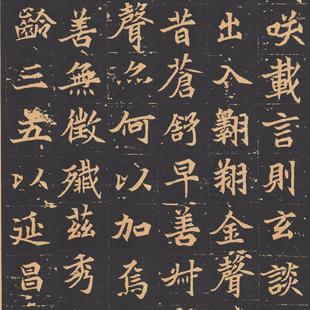 咲載言則玄談
出入翺翔金聲
昔蒼舒早善叔
聲亦何以加焉
善無徵殲茲秀
齡三五以延昌